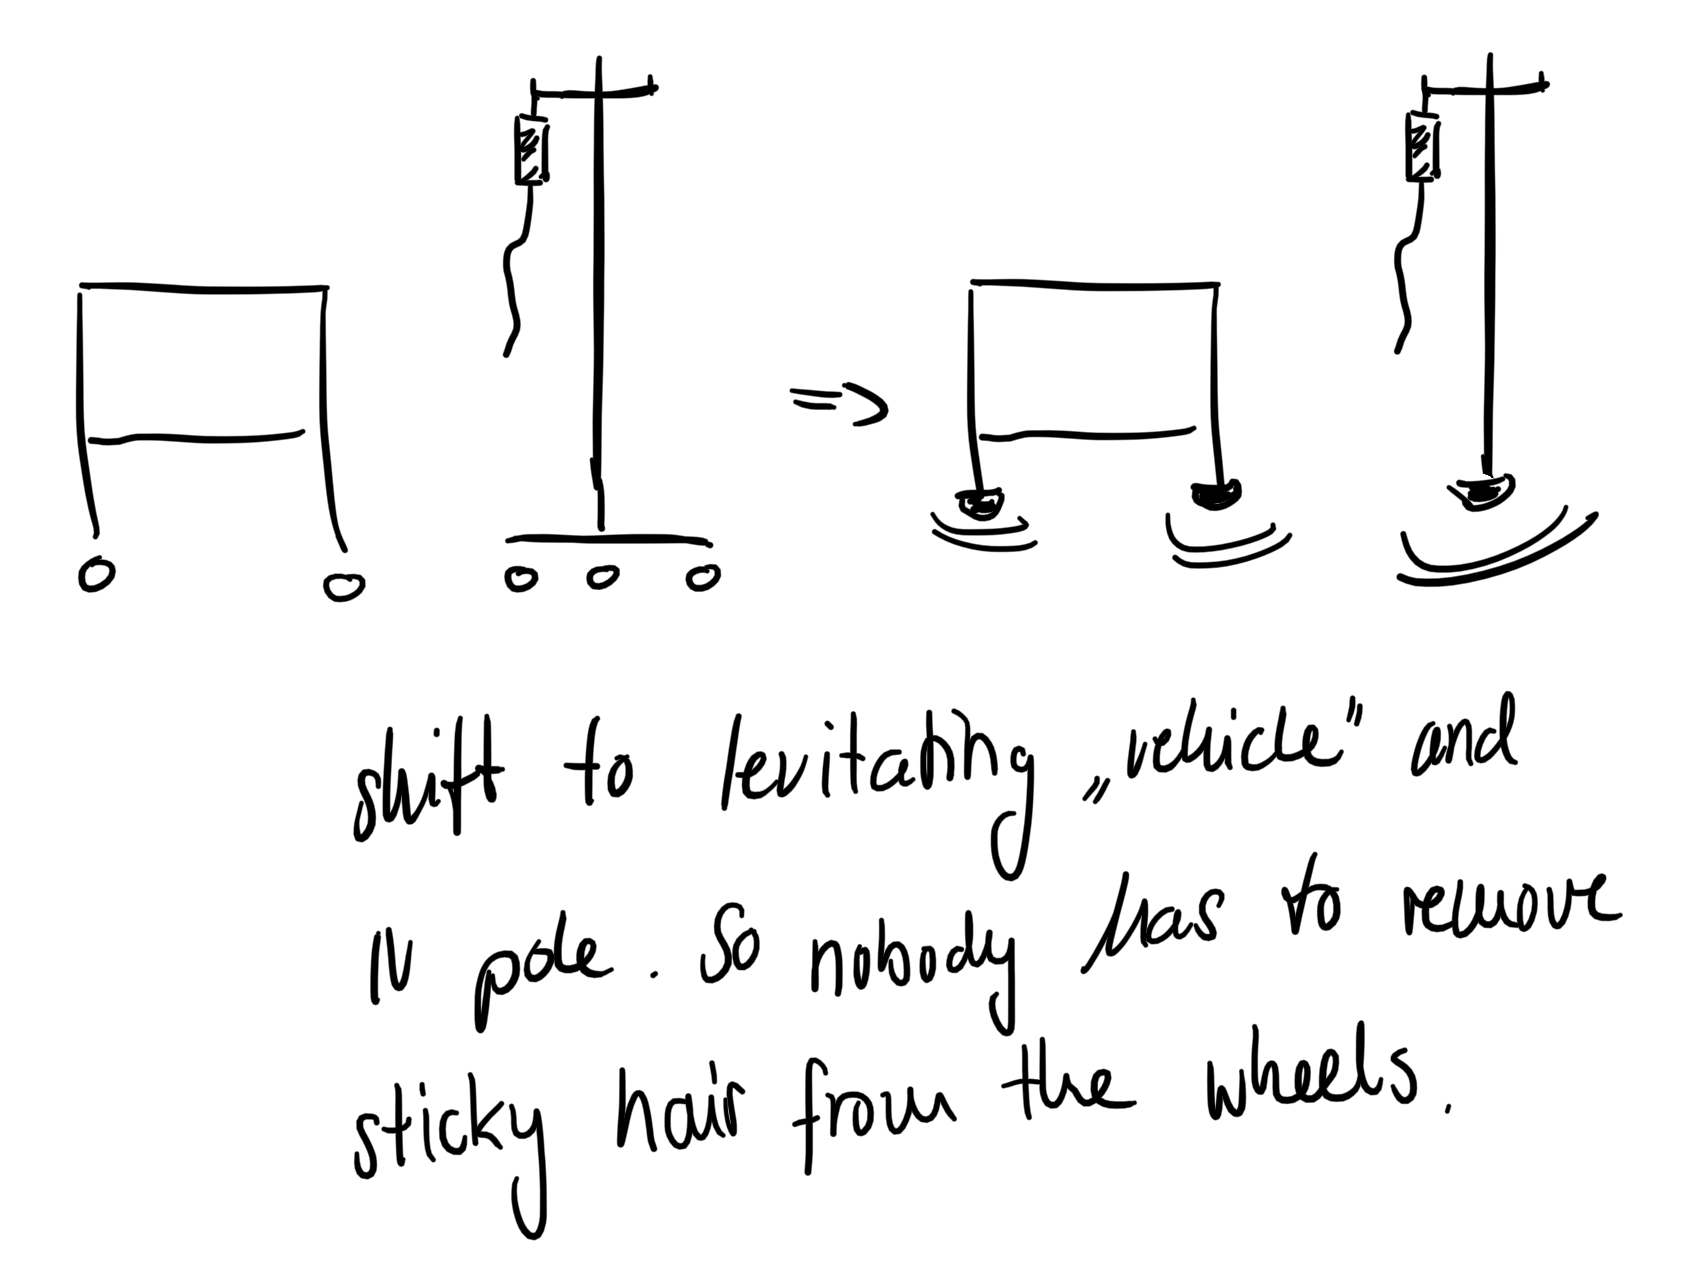 shift to levitating „vehicle" and
IV pole. So nobody has to remove
sticky hair from the wheels.